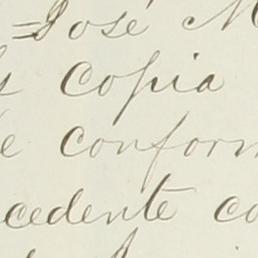 =José M
s Copia
e conform
cedente co